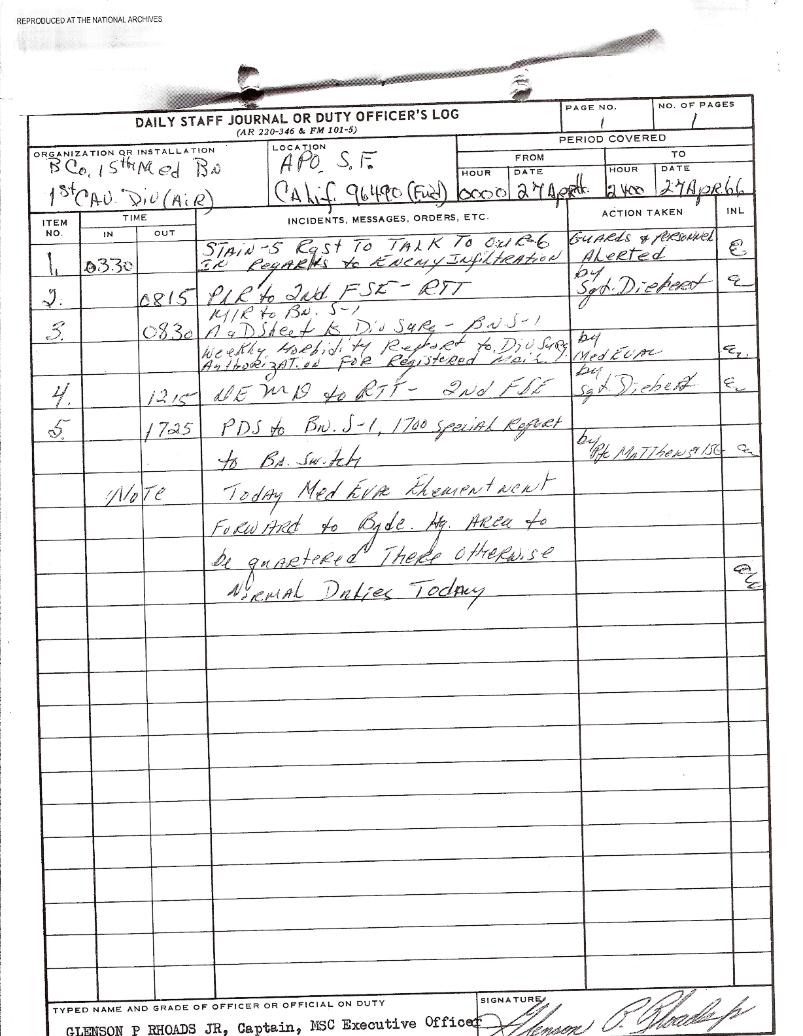 REPRODUCED AT THE NATIONAL ARCHIVES
DAILY STAFF JOURNAL OR DUTY OFFICER'S LOG
(AR 220-346 & FM 101-5)
PAGE NO.
1
NO. OF PAGES
1
ORGANIZATION OR INSTALLATION
B Co, 15th Med Bn
1st CAV. Div (AiR)
LOCATION
APO S.F.
CAlif. 96490 (Fwd)
PERIOD COVERED
FROM
TO
HOUR
DATE
HOUR
DATE
0000
27 Apr
2400
27 ApR 66
ITEM NO.
TIME
IN
OUT
INCIDENTS, MESSAGES, ORDERS, ETC.
ACTION TAKEN
INL
1. 0330 STAIN-5 Rqst TO TALK TO OUR-6 GUARDS & PERSONNEL
IN RegARds to ENEMY INfiltRATION Alerted
2. 0815 to 2nd FSE - RTT by Sgt. Diebert
to BN. S-1
3. 0830 A & D Sheet to Div SuRg - BN S-1
Weekly Morbidity Report to Div SuRg by
AuthoRizAtion FOR RegisteRed MAil. Med EVAC
4. 1215 to RTT - 2nd FSE by Sgt. Diebert
5. 1725 PDS to BN. S-1, 1700 Special RepoRt
to BN. Switch by Pfc MATThews
NOTE Today Med EVAC Element went
FoRwARd to Bgde. Hq. AReA to
be quARteRed TheRe OtheRwise
NoRmAl Duties TodAy
TYPED NAME AND GRADE OF OFFICER OR OFFICIAL ON DUTY
GLENSON P RHOADS JR, Captain, MSC Executive Officer
SIGNATURE
Glenson P Rhoads Jr